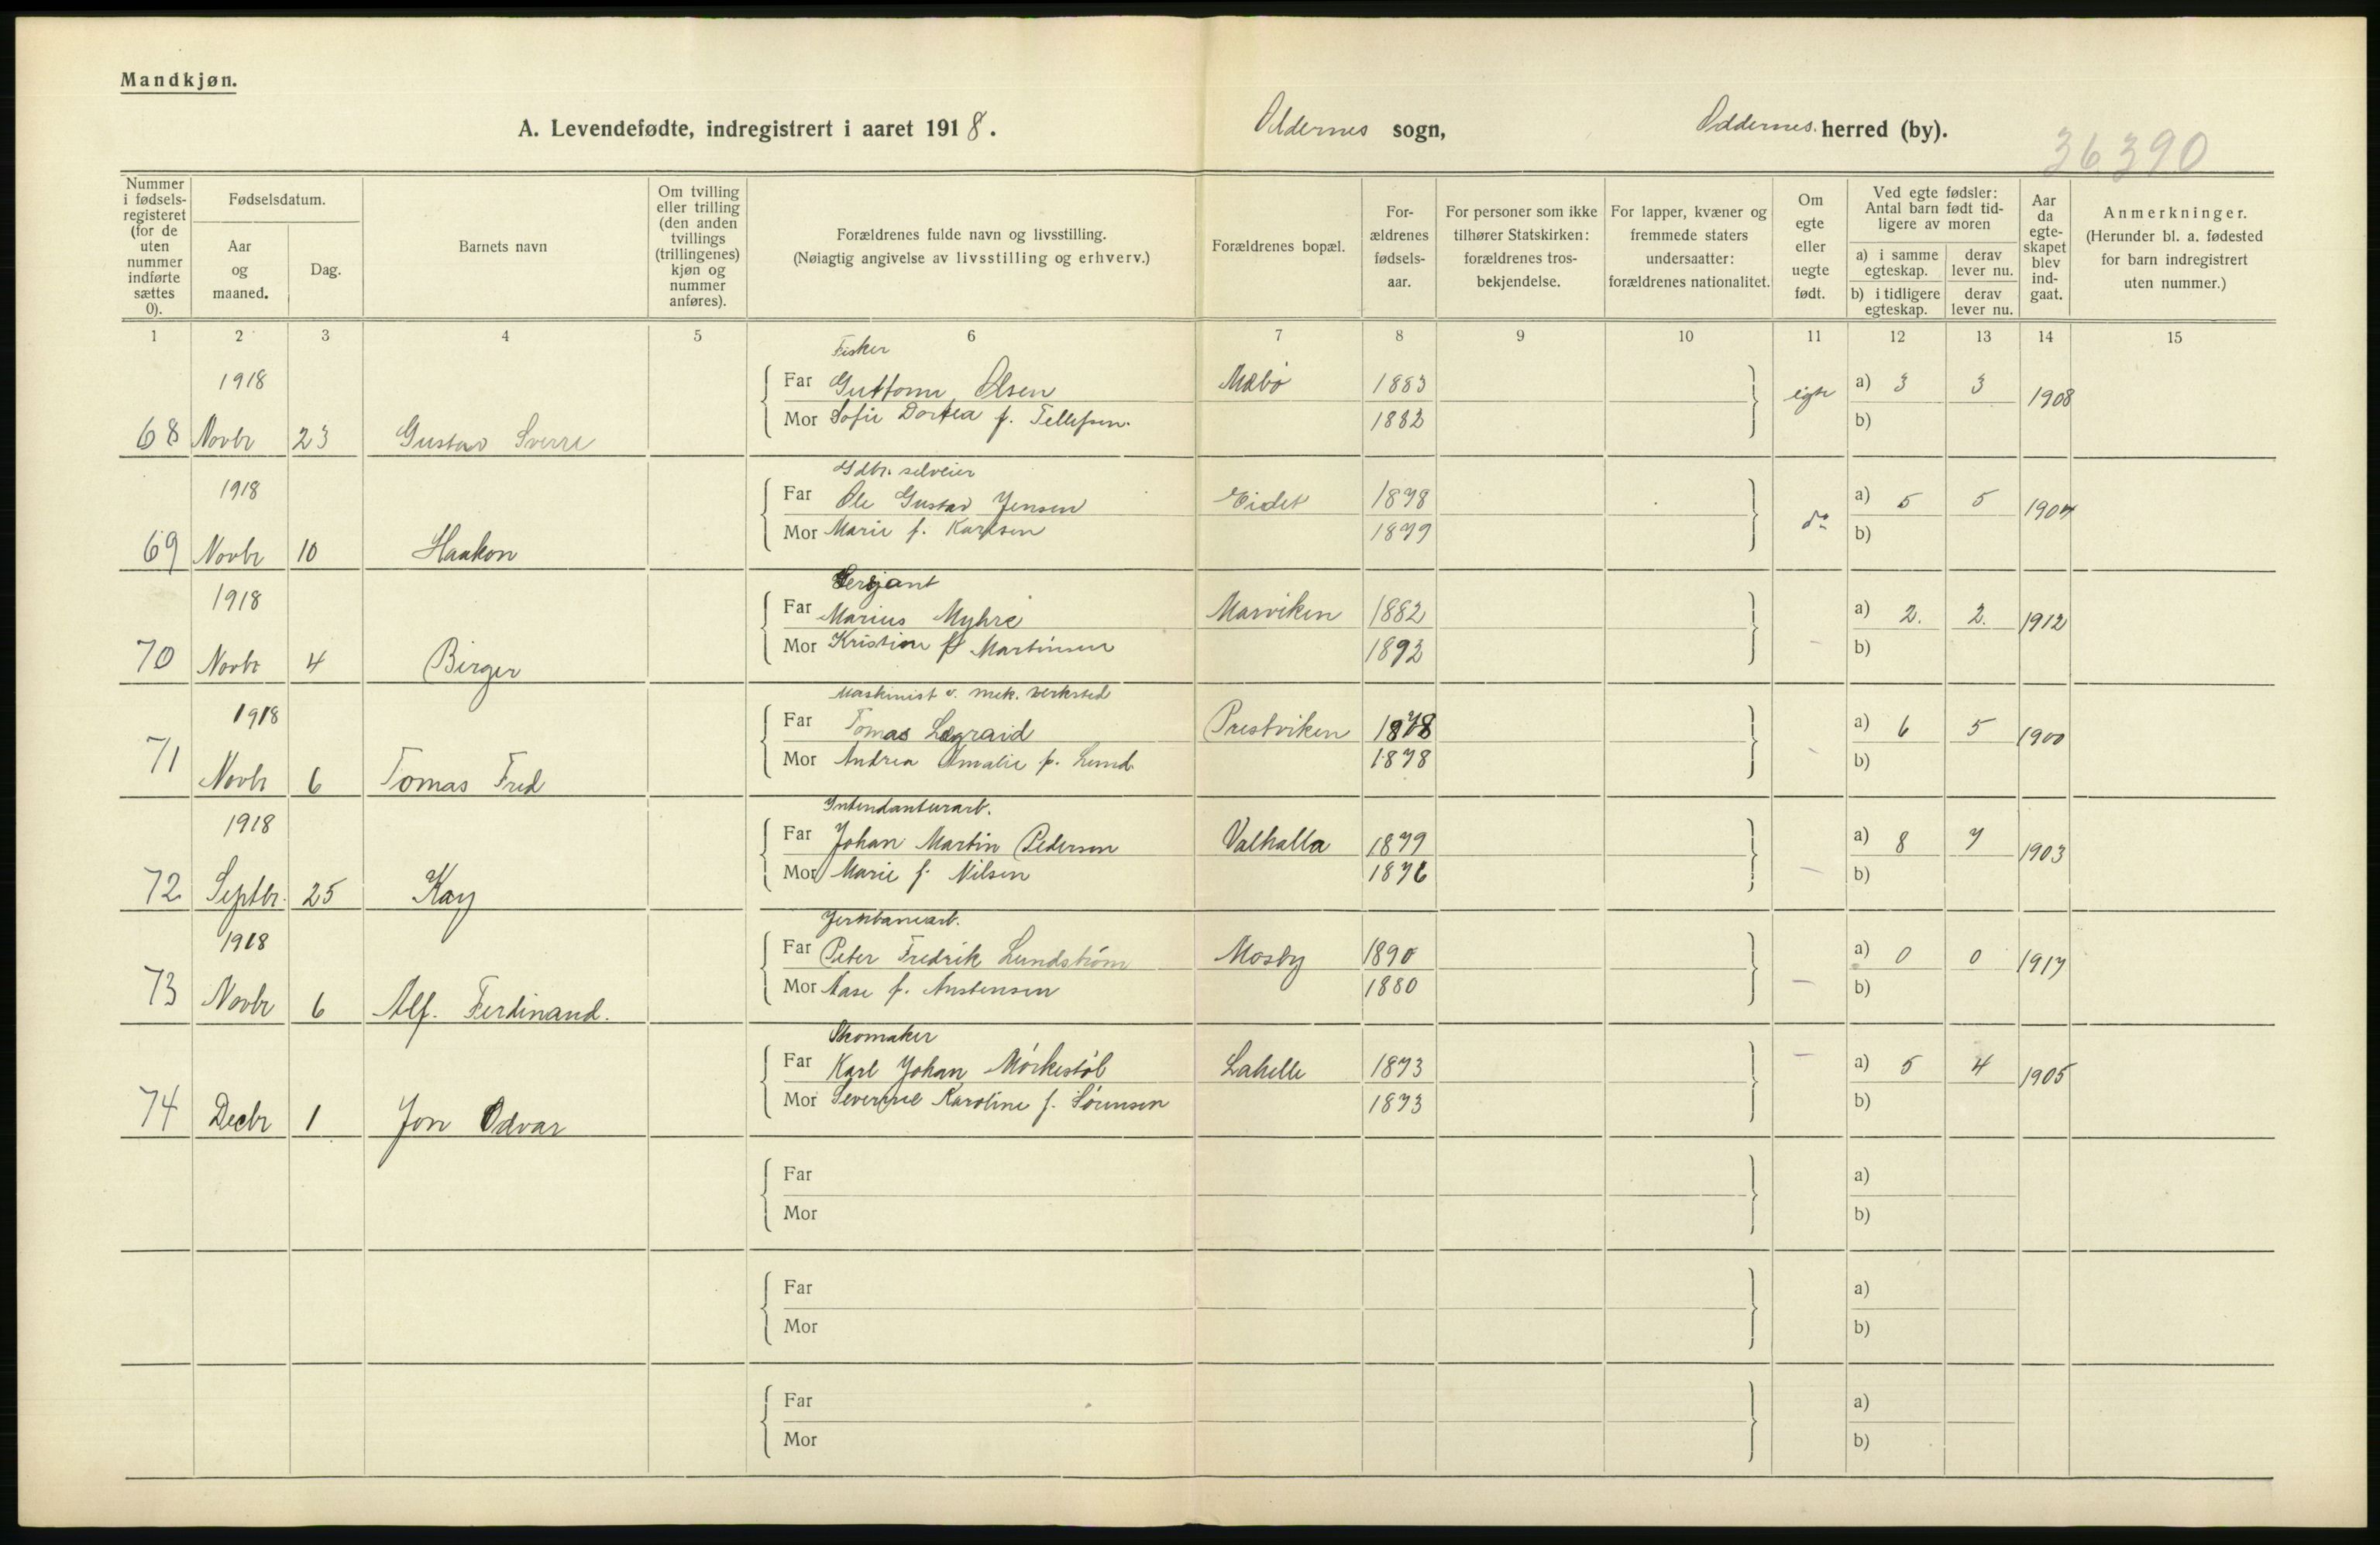 Mandkjøn.
A. Levendefødte, indregistrert i aaret 1918. Oddernes sogn, Oddernes herred (by).
36390
Nummer i fødselsregisteret (for de uten nummer indførte sættes 0).
Fødselsdatum.
Aar og maaned.
Dag.
Barnets navn
Om tvilling eller trilling (den anden tvillings (trillingenes) kjøn og nummer anføres).
Forældrenes fulde navn og livsstilling.
(Nøiagtig angivelse av livsstilling og erhverv.)
Forældrenes bopæl.
Forældrenes fødselsaar.
For personer som ikke tilhører Statskirken: forældrenes trosbekjendelse.
For lapper, kvæner og fremmede staters undersaatter: forældrenes nationalitet.
Om egte eller uegte født.
Ved egte fødsler: Antal barn født tidligere av moren
a) i samme egteskap. derav lever nu.
b) i tidligere egteskap. derav lever nu.
Aar da egteskapet blev indgaat.
Anmerkninger.
(Herunder bl. a. fødested for barn indregistrert uten nummer.)
1 2 3 4 5 6 7 8 9 10 11 12 13 14 15
Fisker
1918 Far Guttorm Olsen Mæbø 1883 egte a) 3 3 1908
68 Novbr 23 Gustav Sverre Mor Sofie Dortea f. Tellefsen. 1882 b)
Gdbr. selveier
1918 Far Ole Gustav Jensen Eidet 1878 do a) 5 5 1904
69 Novbr 10 Haakon Mor Marie f. Karlsen 1879 b)
Sersjant
1918 Far Marius Myhre Marviken 1882 a) 2. 2. 1912
70 Novbr 4 Birger Mor Kristine f Martinsen 1892 – b)
Maskinist v. mek. verksted
1918 Far Tomas Lægraid Prestviken 1878 a) 6 5 1900
71 Novbr 6 Tomas Fred Mor Andrea Amalie f. Lund. 1878 – b)
Intendanturarb.
1918 Far Johan Martin Pedersen Valhalla 1879 a) 8 7 1903
72 Septbr. 25 Kay Mor Marie f. Nilsen 1876 – b)
Jernbanearb.
1918 Far Peter Fredrik Lundstrøm Mosby 1890 a) 0 0 1917
73 Novbr 6 Alf. Ferdinand. Mor Aase f. Anstensen 1880 – b)
Skomaker
Far Karl Johan Mørkestøl Lahelle 1873 – a) 5 4 1905
74 Decbr 1 Jon Odvar Mor Severine Karoline f. Sørensen 1873 b)
Far a)
Mor b)
Far a)
Mor b)
Far a)
Mor b)